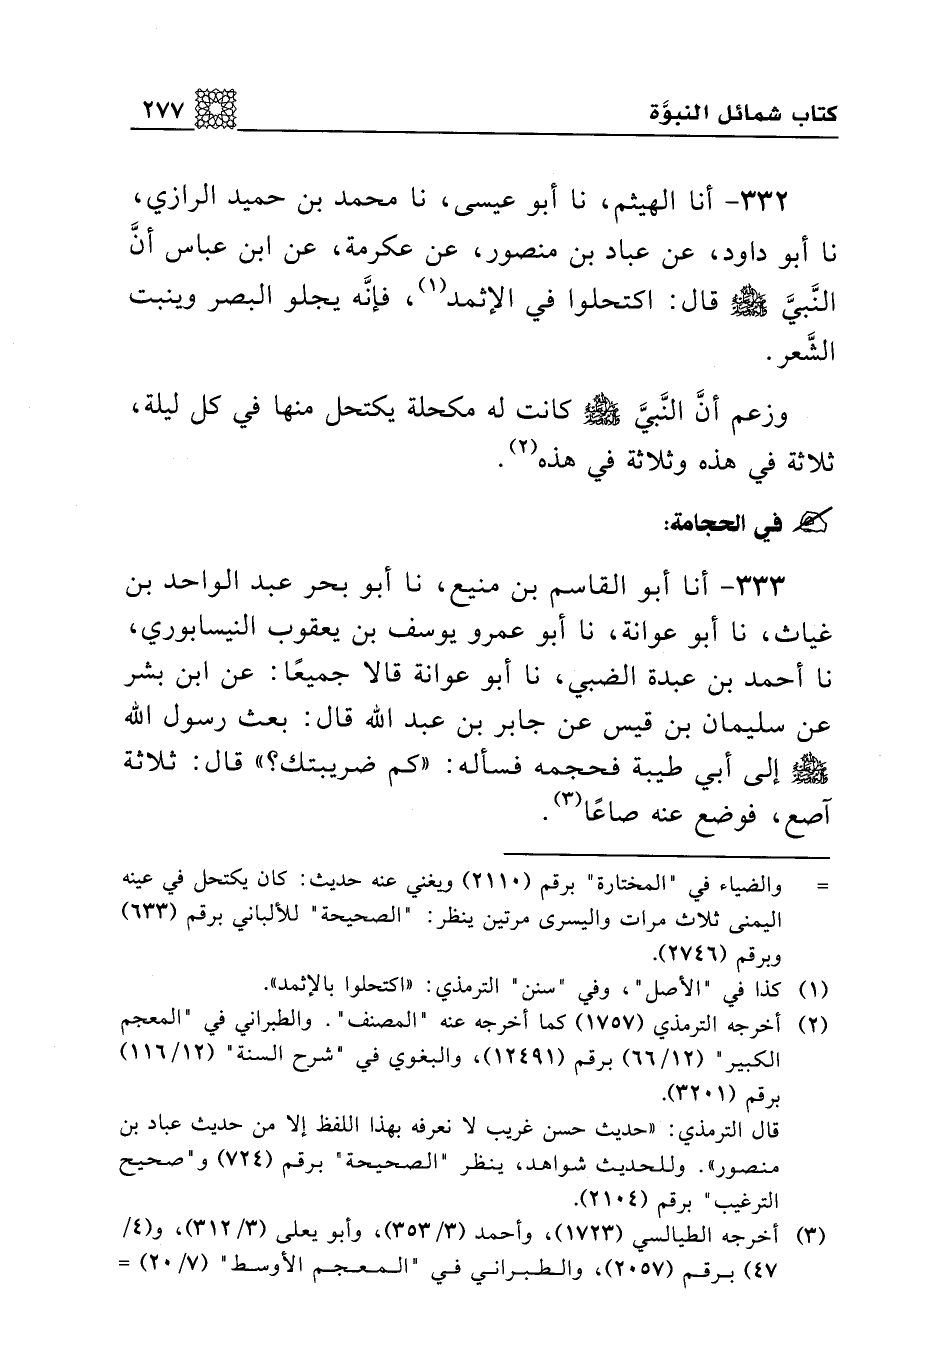 كتاب شمائل النبوَّة ٢٧٧
٣٣٢- أنا الهيثم، نا أبو عيسى، نا محمد بن حميد الرازي،
نا أبو داود، عن عباد بن منصور، عن عكرمة، عن ابن عباس أنَّ
النَّبيَّ ﷺ قال: اكتحلوا في الإثمد(١)، فإنَّه يجلو البصر وينبت
الشَّعر.
وزعم أنَّ النَّبيَّ ﷺ كانت له مكحلة يكتحل منها في كل ليلة،
ثلاثة في هذه وثلاثة في هذه(٢).
في الحجامة:
٣٣٣- أنا أبو القاسم بن منيع، نا أبو بحر عبد الواحد بن
غياث، نا أبو عوانة، نا أبو عمرو يوسف بن يعقوب النيسابوري،
نا أحمد بن عبدة الضبي، نا أبو عوانة قالا جميعًا: عن ابن بشر
عن سليمان بن قيس عن جابر بن عبد الله قال: بعث رسول الله
ﷺ إلى أبي طيبة فحجمه فسأله: «كم ضريبتك؟» قال: ثلاثة
آصع، فوضع عنه صاعًا(٣).
= والضياء في "المختارة" برقم (٢١١٠) ويغني عنه حديث: كان يكتحل في عينه
اليمنى ثلاث مرات واليسرى مرتين ينظر: "الصحيحة" للألباني برقم (٦٣٣)
وبرقم (٢٧٤٦).
(١) كذا في "الأصل"، وفي "سنن" الترمذي: «اكتحلوا بالإثمد».
(٢) أخرجه الترمذي (١٧٥٧) كما أخرجه عنه "المصنف". والطبراني في "المعجم
الكبير" (١٢/ ٦٦) برقم (١٢٤٩١)، والبغوي في "شرح السنة" (١٢/ ١١٦)
برقم (٣٢٠١).
قال الترمذي: «حديث حسن غريب لا نعرفه بهذا اللفظ إلا من حديث عباد بن
منصور». وللحديث شواهد، ينظر "الصحيحة" برقم (٧٢٤) و"صحيح
الترغيب" برقم (٢١٠٤).
(٣) أخرجه الطيالسي (١٧٢٣)، وأحمد (٣/ ٣٥٣)، وأبو يعلى (٣/ ٣١٢)، و(٤/
٤٧) برقم (٢٠٥٧)، والطبراني في "المعجم الأوسط" (٧/ ٢٠) =